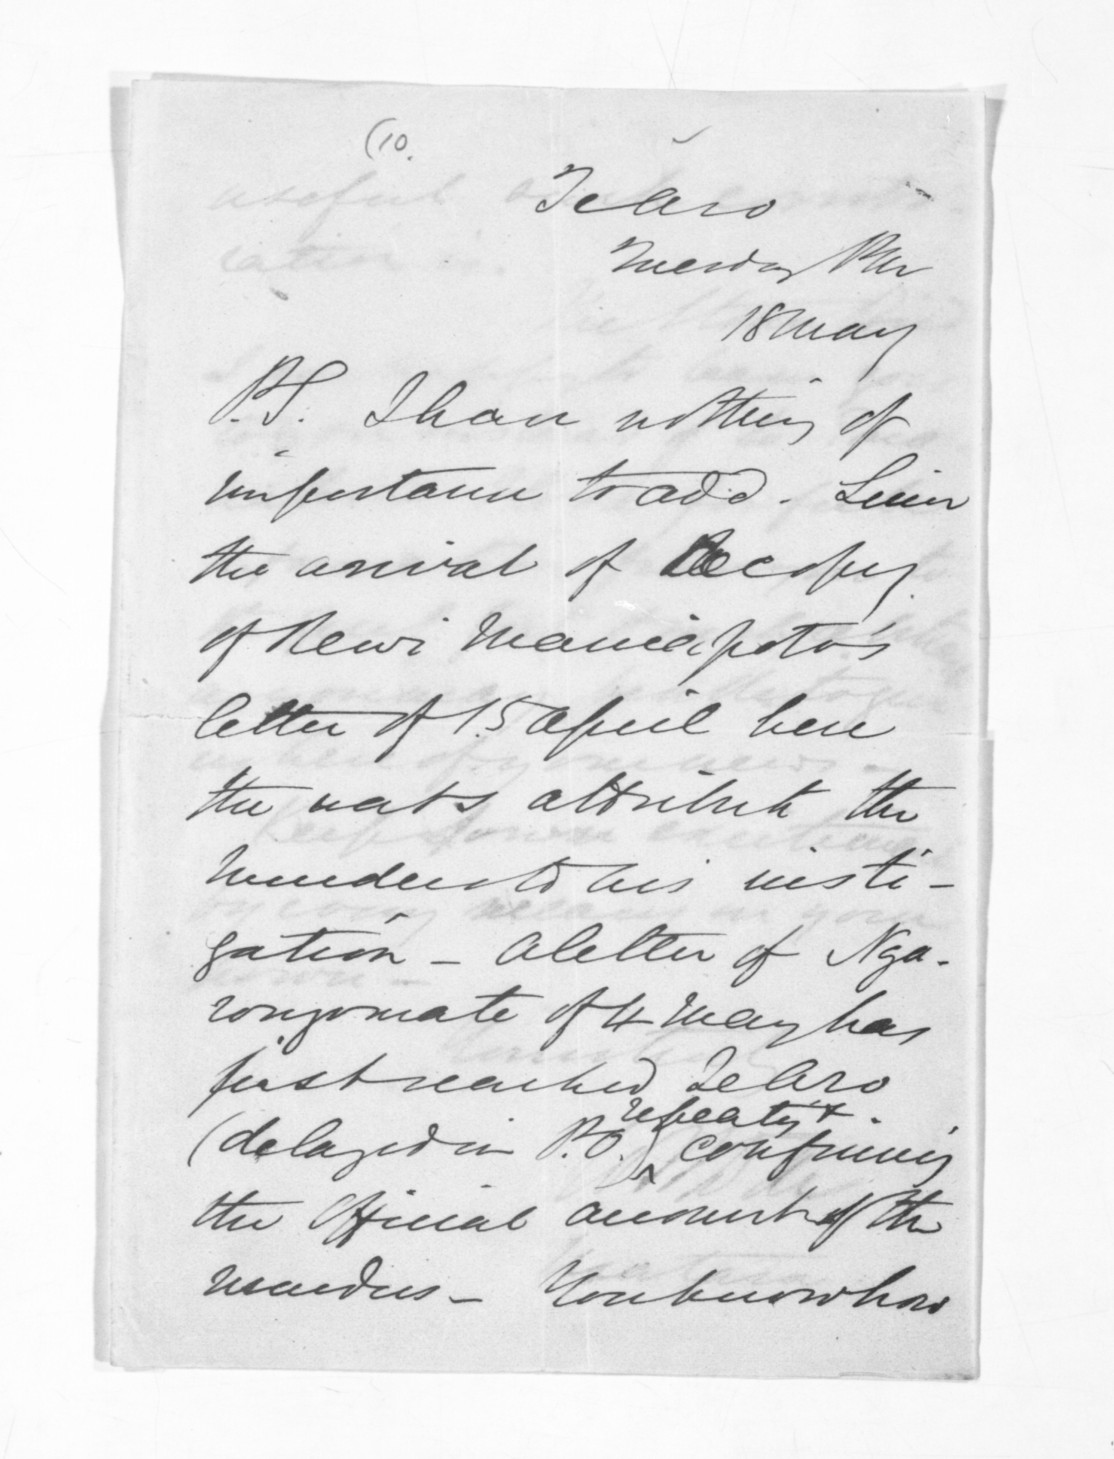 (10.
Te Aro
Tuesday PM
18 May
P.S. I have nothing of
importance to add. Since
the arrival of a copy
of Rewi Maniapoto's
letter of 15 April here
the nats attribute the
murders to his insti-
gation - A letter of Nga-
rongomate of 4 May has
just reached Te Aro
(delayed in P.O.) repeatg &
confirming
the Official account of the
murders - You know how